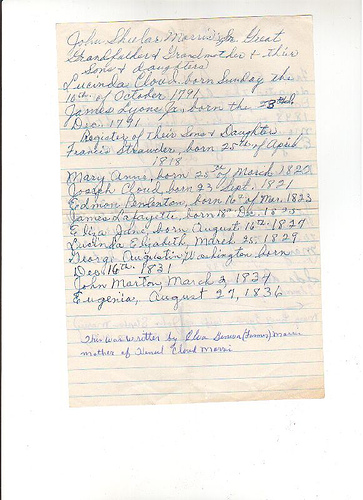 John Shular Morris's Jr. Great
Grandfather & Grandmother & their
Sons & daughters
Lucinda Cloud, born Sunday the
16th of October 1791.
James Lyons Jr. born the 3rd
Dec. 1791
Register of their Sons & Daughters
Francis Strawder, born 25th of April
1818
Mary Anns, born 25th of March 1820
Joseph Cloud, born 23, Sept. 1821
Edmon Penderton, born 16th of Mar. 1823
James Lafayette, born 18th Dec. 1825
Eliza Jane, born August 16th 1827
Lucinda Elizabith, March 25, 1829
George Augustin Washington born
Dec. 16th 1831
John Morton, March 2, 1834
Eugenia, August 27, 1836
This was written by Elva (Turner) Morris
mother of Cloud Morris